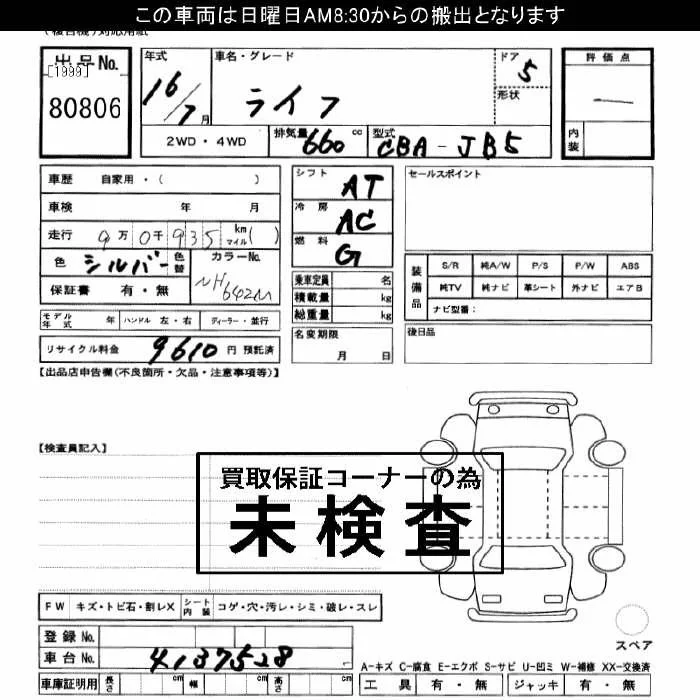 この車両は日曜日AM8:30からの搬出となります
(複合機)対応用紙
出品No.
[1999]
80806
年式
16/7月
車名・グレード
ライフ
ドア
5
形状
評価点
内装
2WD・4WD
排気量 660 cc
型式 CBA-JB5
車歴 自家用・( )
車検 年 月
走行 9万0千935 km マイル( )
色 シルバー 色替 カラーNo. NH642M
保証書 有・無
シフト AT
冷房 AC
燃料 G
乗車定員 名
積載量 kg
総重量 kg
セールスポイント
装備品
S/R 純A/W P/S P/W ABS
純TV 純ナビ 革シート 外ナビ エアB
ナビ型番:
モデル年式 年 ハンドル 左・右 ディーラー・並行
名変期限
月 日
後日品
リサイクル料金 9610 円 預託済
【出品店申告欄(不良箇所・欠品・注意事項等)】
【検査員記入】
買取保証コーナーの為
未検査
FW キズ・トビ石・割レX シート内装 コゲ・穴・汚レ・シミ・破レ・スレ
登録No.
車台No. 4137528
スペア
A-キズ C-腐食 E-エクボ S-サビ U-凹ミ W-補修 XX-交換済
車庫証明用 長さ cm 幅 cm 高さ cm
工具 有・無 ジャッキ 有・無